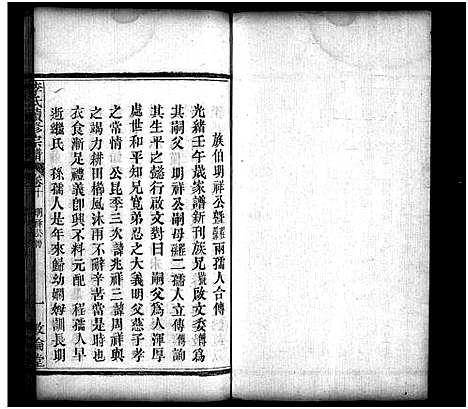 族伯明祥公暨羅兩孺人合傳
光緒壬午歲家譜新刊族兄 啟文委譜爲
其嗣父明祥公嗣母羅二孺人立傳傳詢
其生平之懿行啟文對曰 嗣父爲人渾厚
處世和平知兄寬弟忍之大義明父慈子孝
之常情 公昆季三次壽兆祥三壽周祥與
之竭力耕田櫛風沐雨不辭辛苦當是時也
衣食漸足禮義卽興不料元配 程孺人早
逝繼氏 孫孺人是年來歸幼嫻姆訓長期
氏續修宗譜
明祥公傳
一
敦倫堂